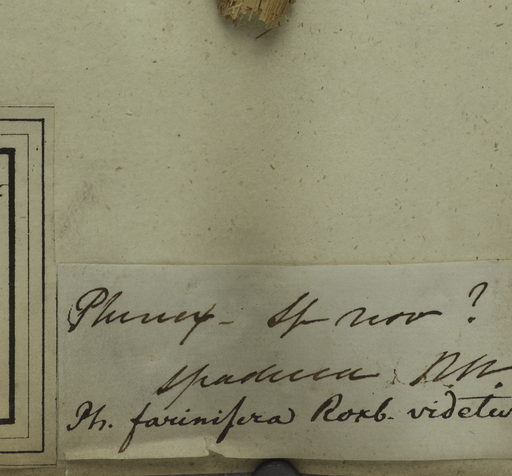 Phoenix - Sp nov ?
spadicea
Ph. farinifera Roxb. videtur